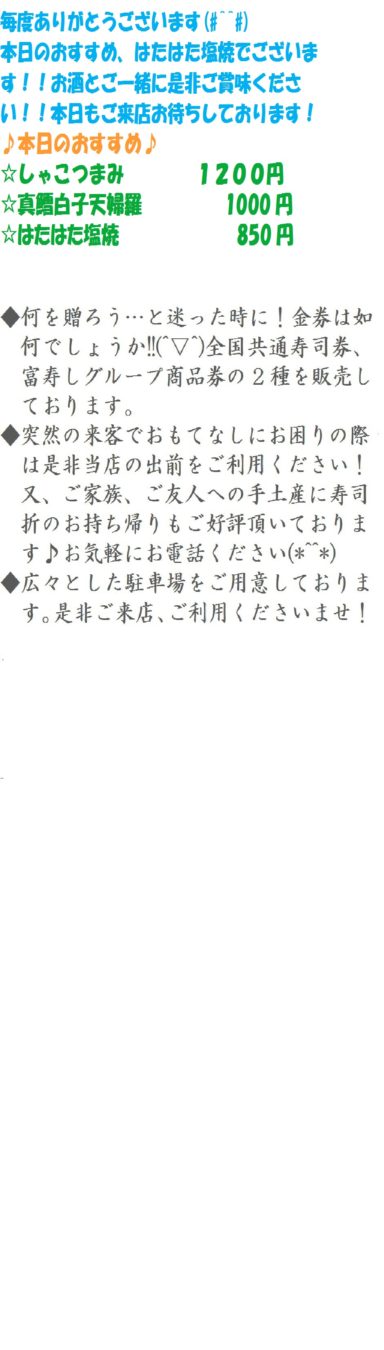 毎度ありがとうございます(#^^#)
本日のおすすめ、はたはた塩焼でございま
す！！お酒とご一緒に是非ご賞味くださ
い！！本日もご来店お待ちしております！
♪本日のおすすめ♪
☆しゃこつまみ　　　　１２００円
☆真鱈白子天婦羅　　　　1000円
☆はたはた塩焼　　　　　850円
◆何を贈ろう…と迷った時に！金券は如
何でしょうか!!(^▽^)全国共通寿司券、
富寿しグループ商品券の２種を販売し
ております。
◆突然の来客でおもてなしにお困りの際
は是非当店の出前をご利用ください！
又、ご家族、ご友人への手土産に寿司
折のお持ち帰りもご好評頂いておりま
す♪お気軽にお電話ください(*^^*)
◆広々とした駐車場をご用意しておりま
す。是非ご来店、ご利用くださいませ！